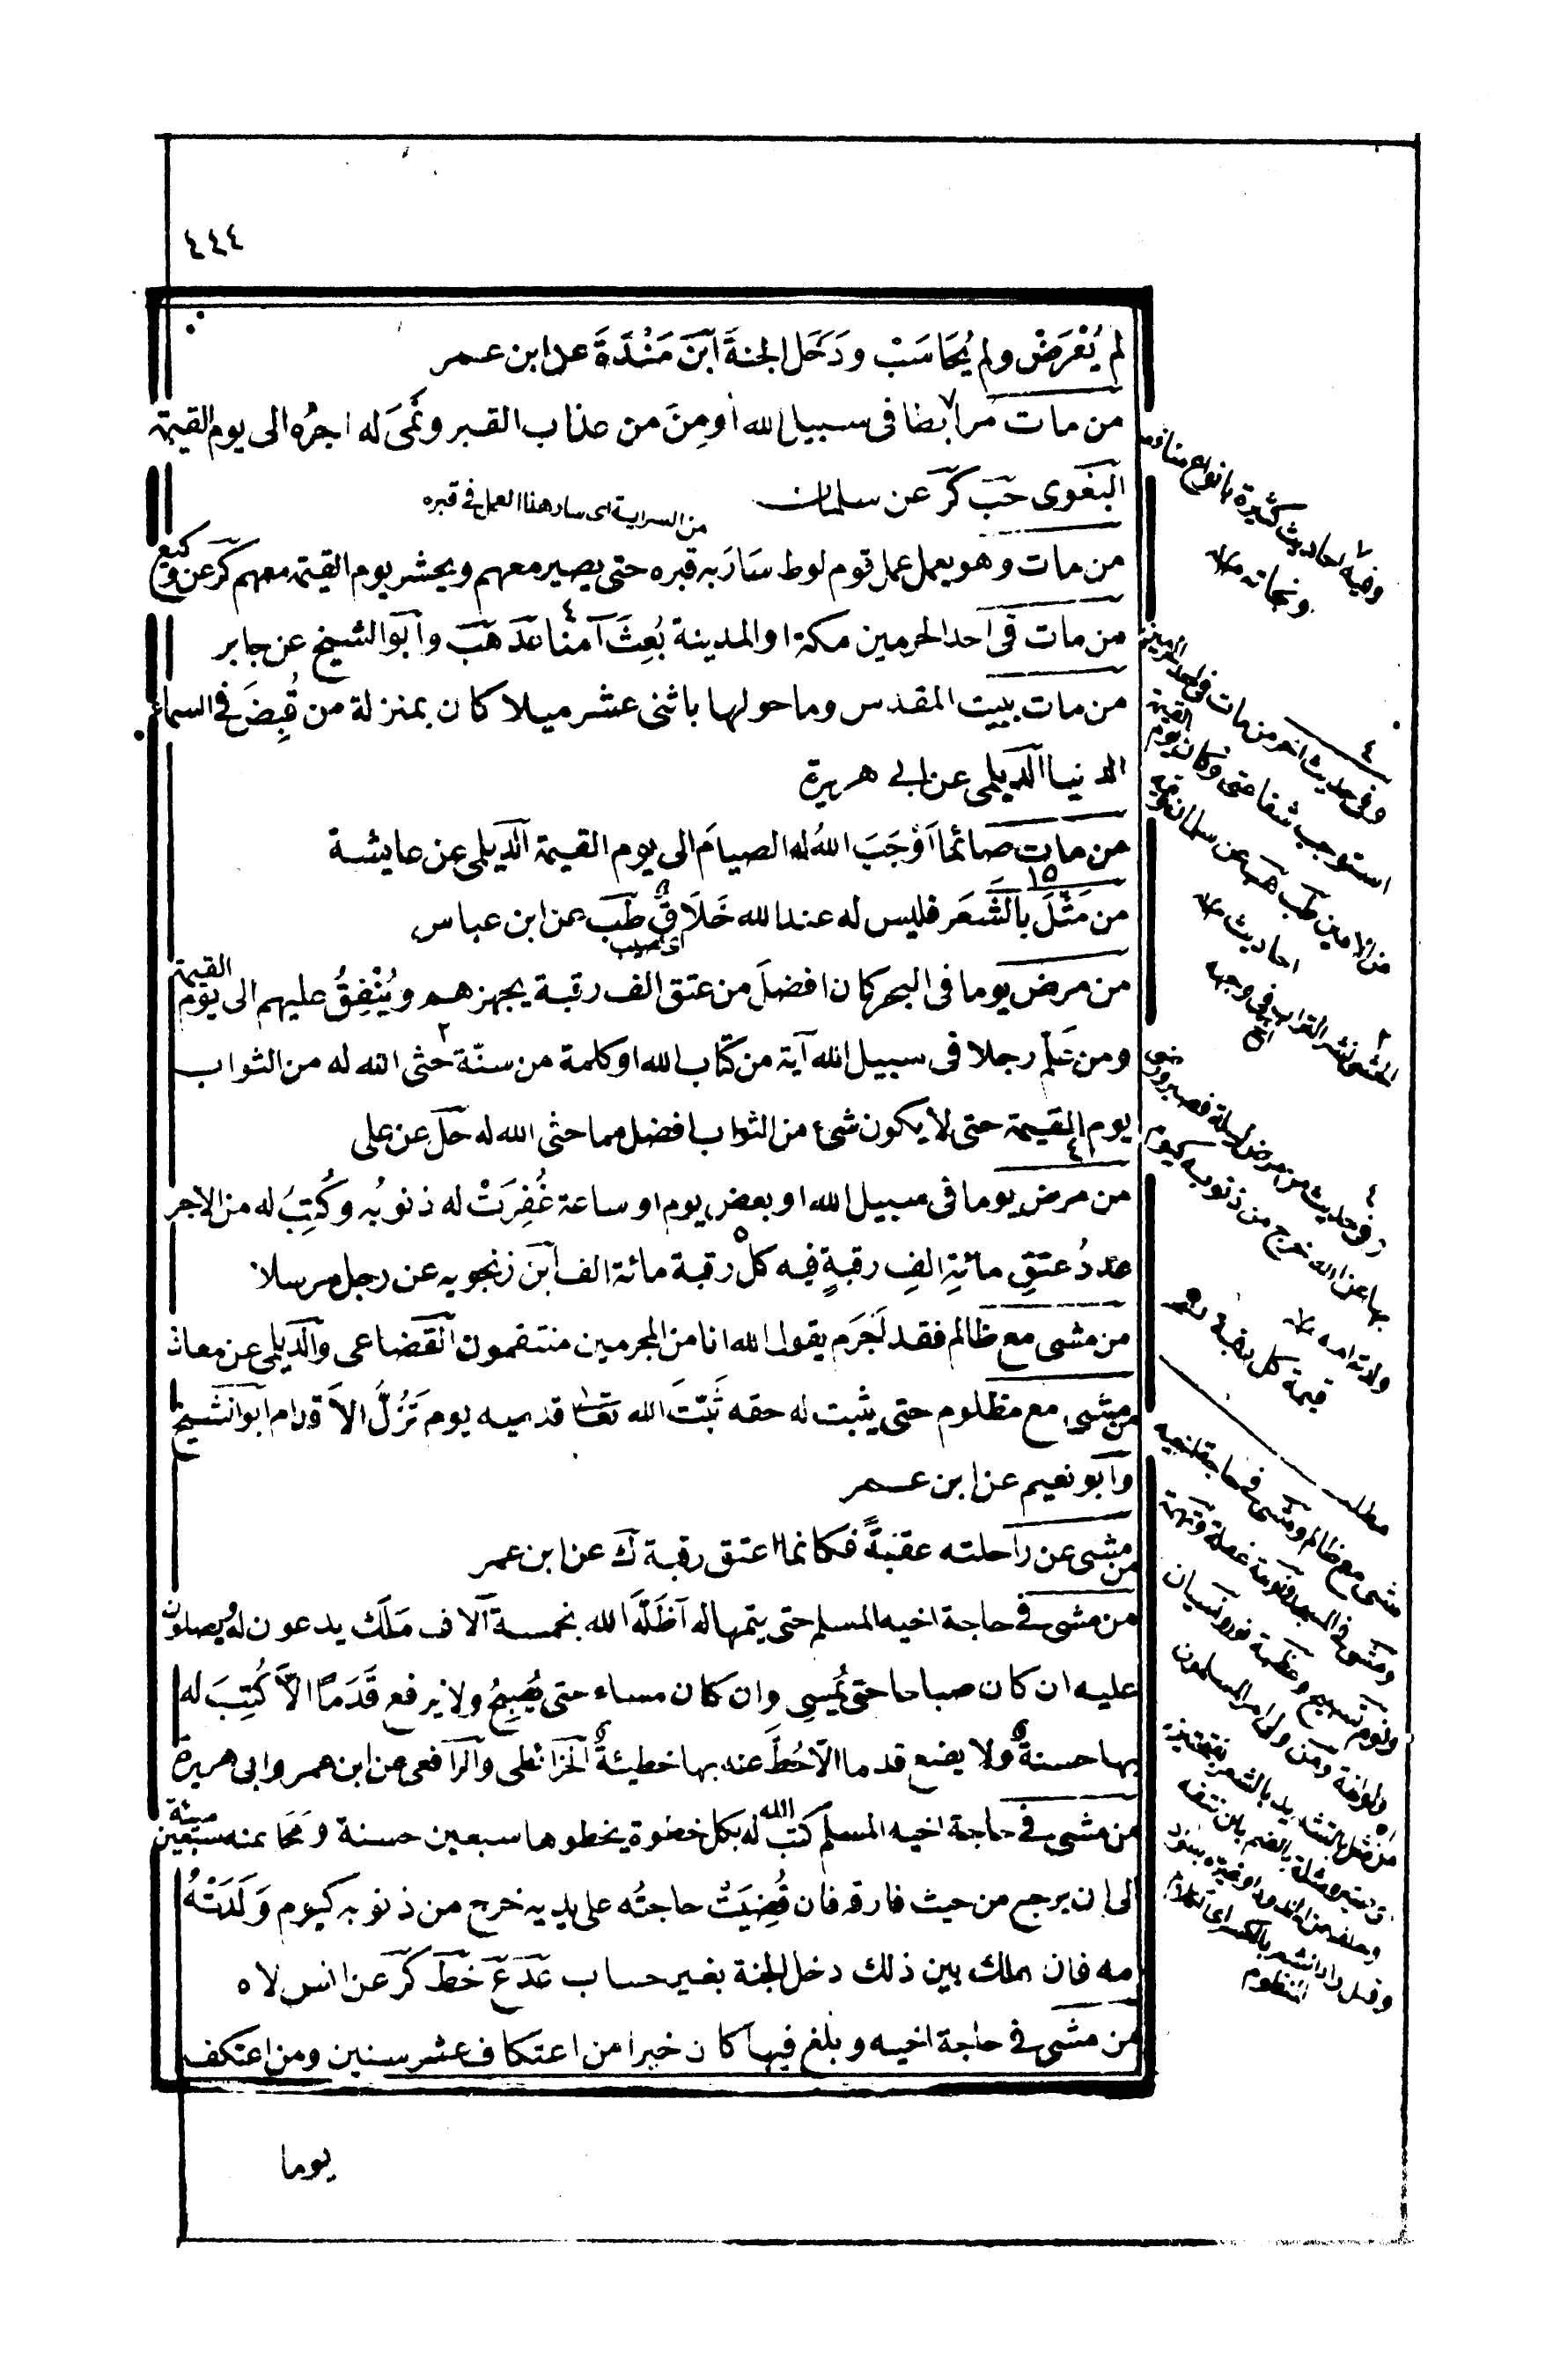 ٤٤٤
لم يُعْرَضْ ولم يُحَاسَبْ ودَخَل الجنةَ ابن مَنْدَةَ عن ابن عمر
من مات مرابطا فى سبيل الله اُومِنَ من عذاب القبر ونَمَى له اجرُه الى يوم القيمة
البغوى حب كر عن سلمان
من السراية اى سار هذا العمل فى قبره
من مات وهو يعمل عمل قوم لوط سَارَ به قبره حتى يصير معهم ويحشر يوم القيمة معهم كر عن وكيع
من مات فى احد الحرمين مكة او المدينة بُعِثَ آمنا عد هب وابو الشيخ عن جابر
من مات ببيت المقدس وما حولها باثنى عشر ميلا كان بمنزلة من قُبِضَ فى السماء
الدنيا الديلمى عن ابى هريرة
من مات صائما اَوْجَبَ اللهُ له الصيامَ الى يوم القيمة الديلمى عن عايشة
من مَثَّلَ بالشَّعَر فليس له عند الله خَلَاقٌ طب عن ابن عباس
اى نصيب
من مرض يوما فى البحر كان افضلَ من عتق الف رقبة يجهزهم ويُنْفِقُ عليهم الى يوم القيمة
ومن عَلَّم رجلا فى سبيل الله آية من كتاب الله او كلمة من سنّة حثى الله له من الثواب
يوم القيمة حتى لا يكون شئ من الثواب افضل مما حثى الله له حل عن على
من مرض يوما فى سبيل الله او بعض يوم او ساعة غُفِرَتْ له ذنوبُه وكُتِبَ له من الاجر
عددُ عتقِ مائةِ الفِ رقبةٍ قيمة كل رقبة مائة الف ابن زنجويه عن رجل مرسلا
من مشى مع ظالم فقد اَجْرَم يقول الله انا من المجرمين منتقمون القضاعى والديلمى عن معاذ
من مشى مع مظلوم حتى يثبت له حقه ثَبَّتَ الله تعا قدميه يوم تَزُلُّ الاَقدام ابو الشيخ
وابو نعيم عن ابن عمر
من مشى عن راحلته عقبةً فكانما اعتق رقبة ك عن ابن عمر
من مشى فى حاجة اخيه المسلم حتى يتمها له اَظَلَّهُ الله بخمسة آلاف مَلَك يدعون له ويصلون
عليه ان كان صباحا حتى يُمْسِى وان كان مساء حتى يُصْبِحُ ولا يرفع قَدَمًا الاّ كُتِبَ له
بها حسنةٌ ولا يضع قدما الاّ حُطَّ عنه بها خطيئةٌ الخرائطى والرافعى عن ابن عمر وابى هريرة
من مشى فى حاجة اخيه المسلم كتب الله له بكل خطوة يخطوها سبعين حسنة ومَحَا عنه سبعين سيئة
الى ان يرجع من حيث فارقه فان قُضِيَتْ حاجتُه على يديه خرج من ذنوبه كيوم وَلَدَتْهُ
امه فان هلك بين ذلك دخل الجنة بغير حساب عد ع خط كر عن انس لاه
من مشى فى حاجة اخيه وبلغ فيها كان خيرا من اعتكاف عشر سنين ومن اعتكف
يوما
وفيه احاديث كثيرة بانواع
ونجاته
وفى حديث اخر من مات فى احد الحرمين
استوجب شفاعتى وكان يوم القيمة
من الآمنين طب هب عن سلمان
احاديث
الحثى نشر التراب فى وجهه
وفى حديث من مرض ليلة فصبر ورضى
بها عن الله خرج من ذنوبه كيوم
ولدته امه
قيمة كل رقبة
مطلب
مشى مع ظالم ومشى فى حاجة اخيه